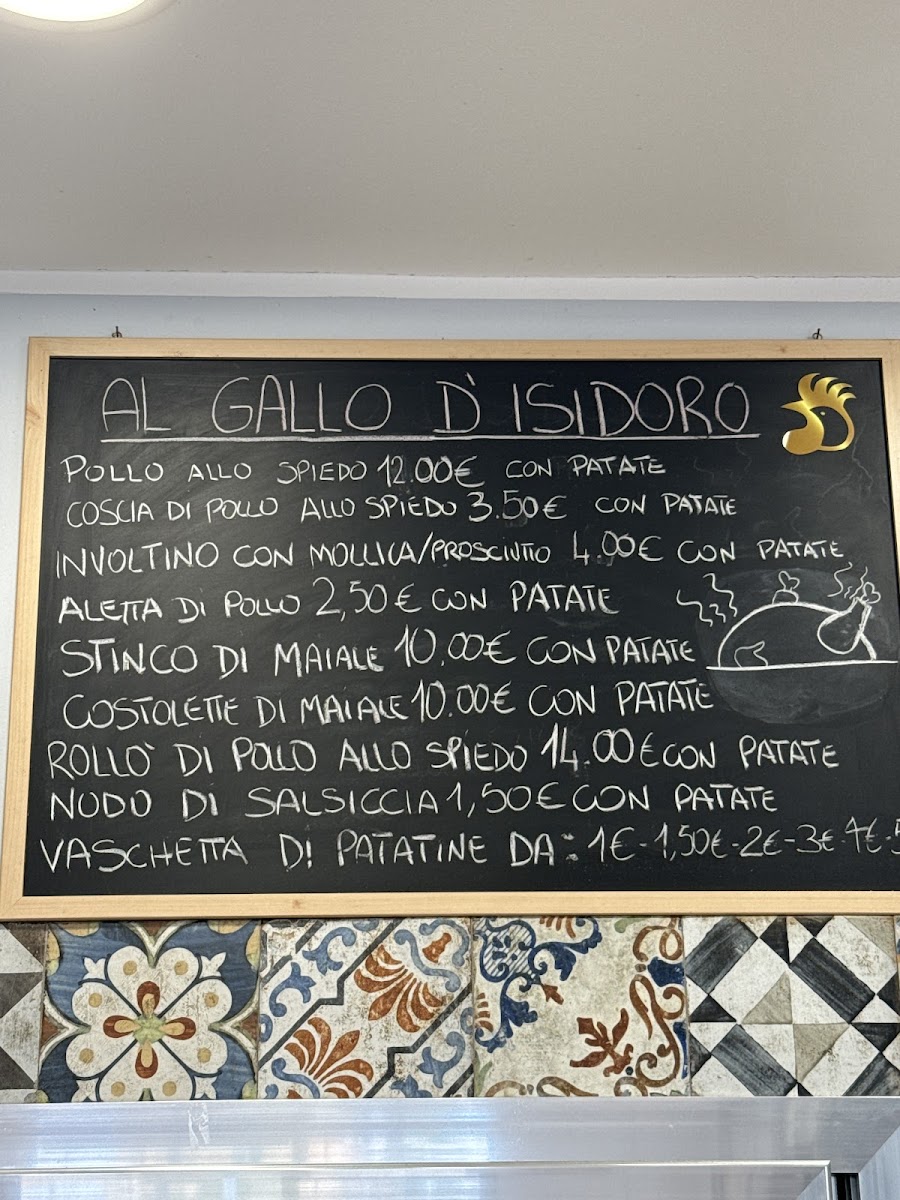 AL GALLO D'ISIDORO
POLLO ALLO SPIEDO 12.00€ CON PATATE
COSCIA DI POLLO ALLO SPIEDO 3.50€ CON PATATE
INVOLTINO CON MOLLICA/PROSCIUTTO 4.00€ CON PATATE
ALETTA DI POLLO 2,50€ CON PATATE
STINCO DI MAIALE 10.00€ CON PATATE
COSTOLETTE DI MAIALE 10.00€ CON PATATE
ROLLO' DI POLLO ALLO SPIEDO 14.00€ CON PATATE
NODO DI SALSICCIA 1,50€ CON PATATE
VASCHETTA DI PATATINE DA: 1€-1,50€-2€-3€-4€-5